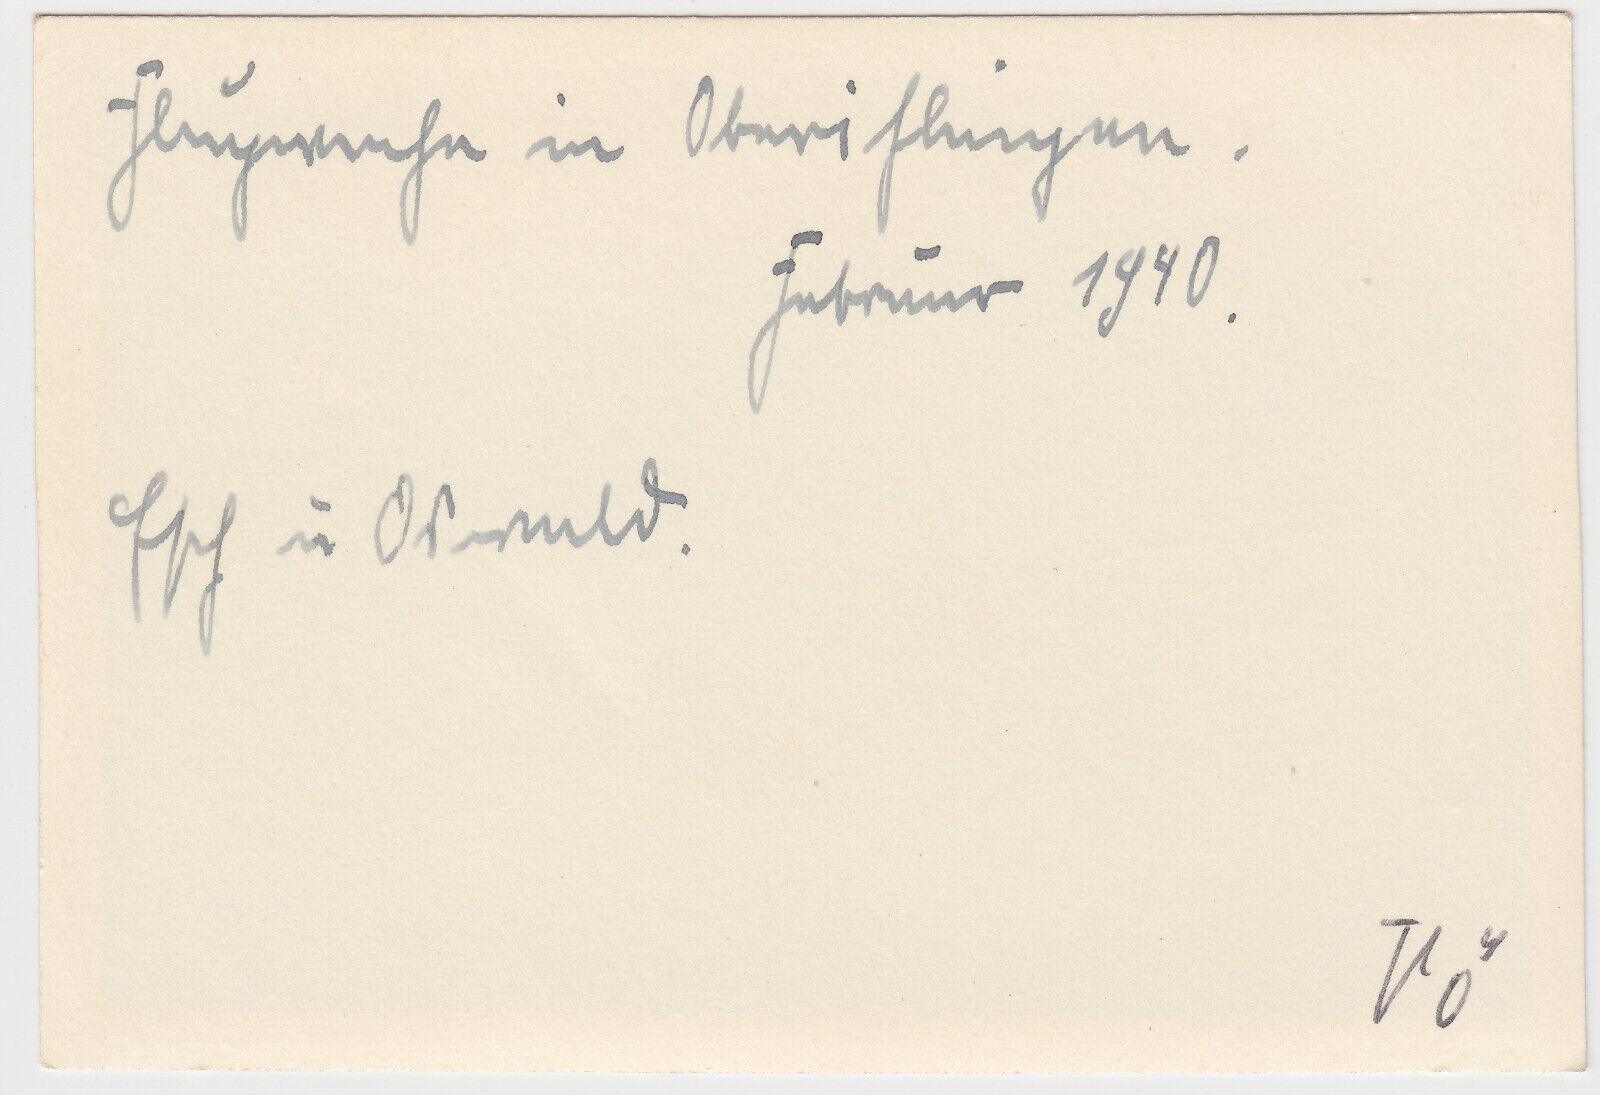 Flugwache in Oberiflingen.
Februar 1940.
Esch u Oswald.